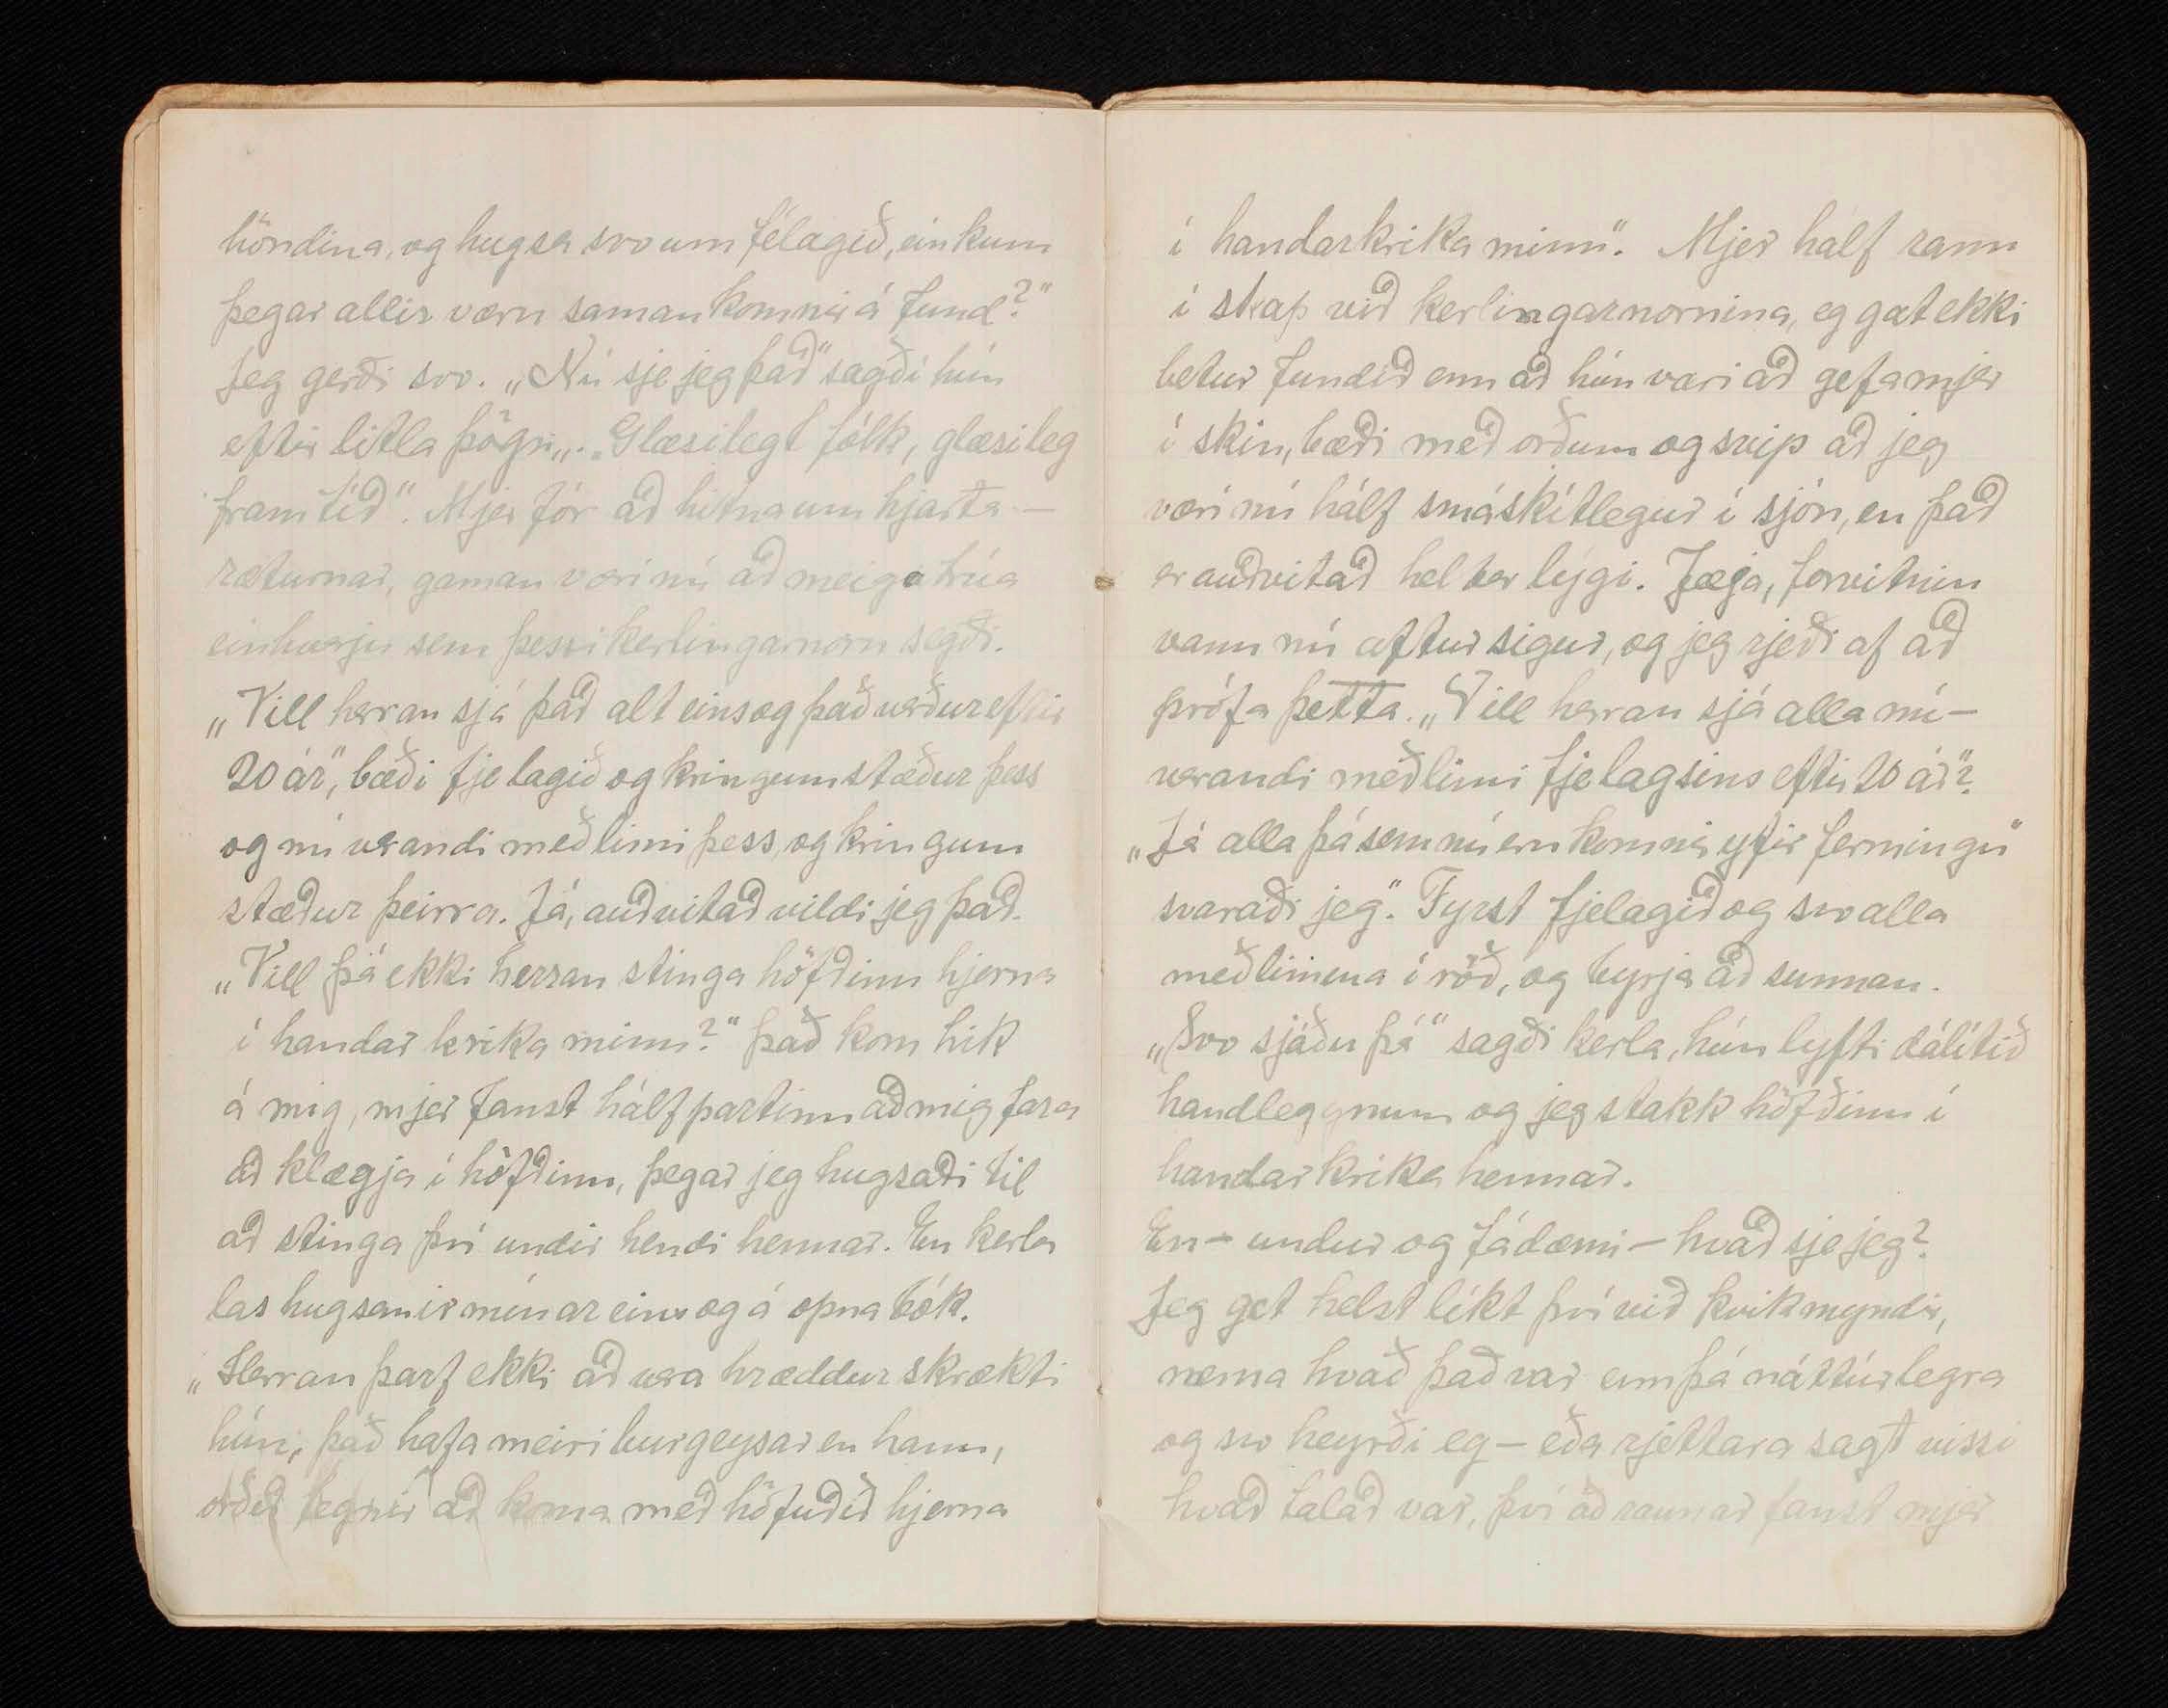 höndina, og hugsa svo um félagið, einkum
þegar allir væru saman komnir á fund?"
Jeg gerði svo. „Nú sje jeg það" sagði hún
eftir litla þögn„. „Glæsilegt fólk, glæsileg
framtíð". Mjer fór að hitna um hjarta-
ræturnar, gaman væri nú að meiga trúa
einhverju sem þessi kerlingarnorn segði.
„Vill herran sjá það alt eins og það verður eftir
20 ár", bæði fjelagið og kringumstæður þess
og nú verandi meðlimi þess, og kringum
stæður þeirra. Já, auðvitað vildi jeg það.
„Vill þá ekki herran stinga höfðinu hjerna
í handar krika minn?" það kom hik
á mig, mjer fanst hálfpartinn að mig fara
að klægja í höfðinu, þegar jeg hugsaði til
að stinga því undir hendi hennar. En kerla
las hugsanir mínar eins og á opna bók.
„Herran þarf ekki að vera hræddur skrækti
hún, það hafa meiri burgeysar en hann,
orðið fegnir að koma með höfuðið hjerna
í handarkrika minn". Mjer hálf rann
í skap við kerlingarnornina, eg gat ekki
betur fundið enn að hún væri að gefa mjer
í skin, bæði með orðum og svip að jeg
væri nú hálf smáskítlegur í sjón, en það
er auðvitað hel ber lýgi. Jæja, forvitnin
vann nú aftur sigur, og jeg rjeði af að
prófa þetta. „Vill herran sjá alla nú-
verandi meðlimi fjelagsins eftir 20 ár"?
„Já alla þá sem nú eru komnir yfir fermingu"
svaraði jeg". Fyrst fjelagið og svo alla
meðlimina í röð, og byrja að sunnan.
„Svo sjáðu þá" sagði kerla, hún lyfti dálítið
handleggnum og jeg stakk höfðinu í
handarkrika hennar.
En - undur og fádæmi - hvað sje jeg?
Jeg get helst líkt því við kvikmyndir,
nema hvað það var enn þá náttúrlegra
og svo heyrði eg - eða rjettara sagt vissi
hvað talað var, því að raunar fanst mjer